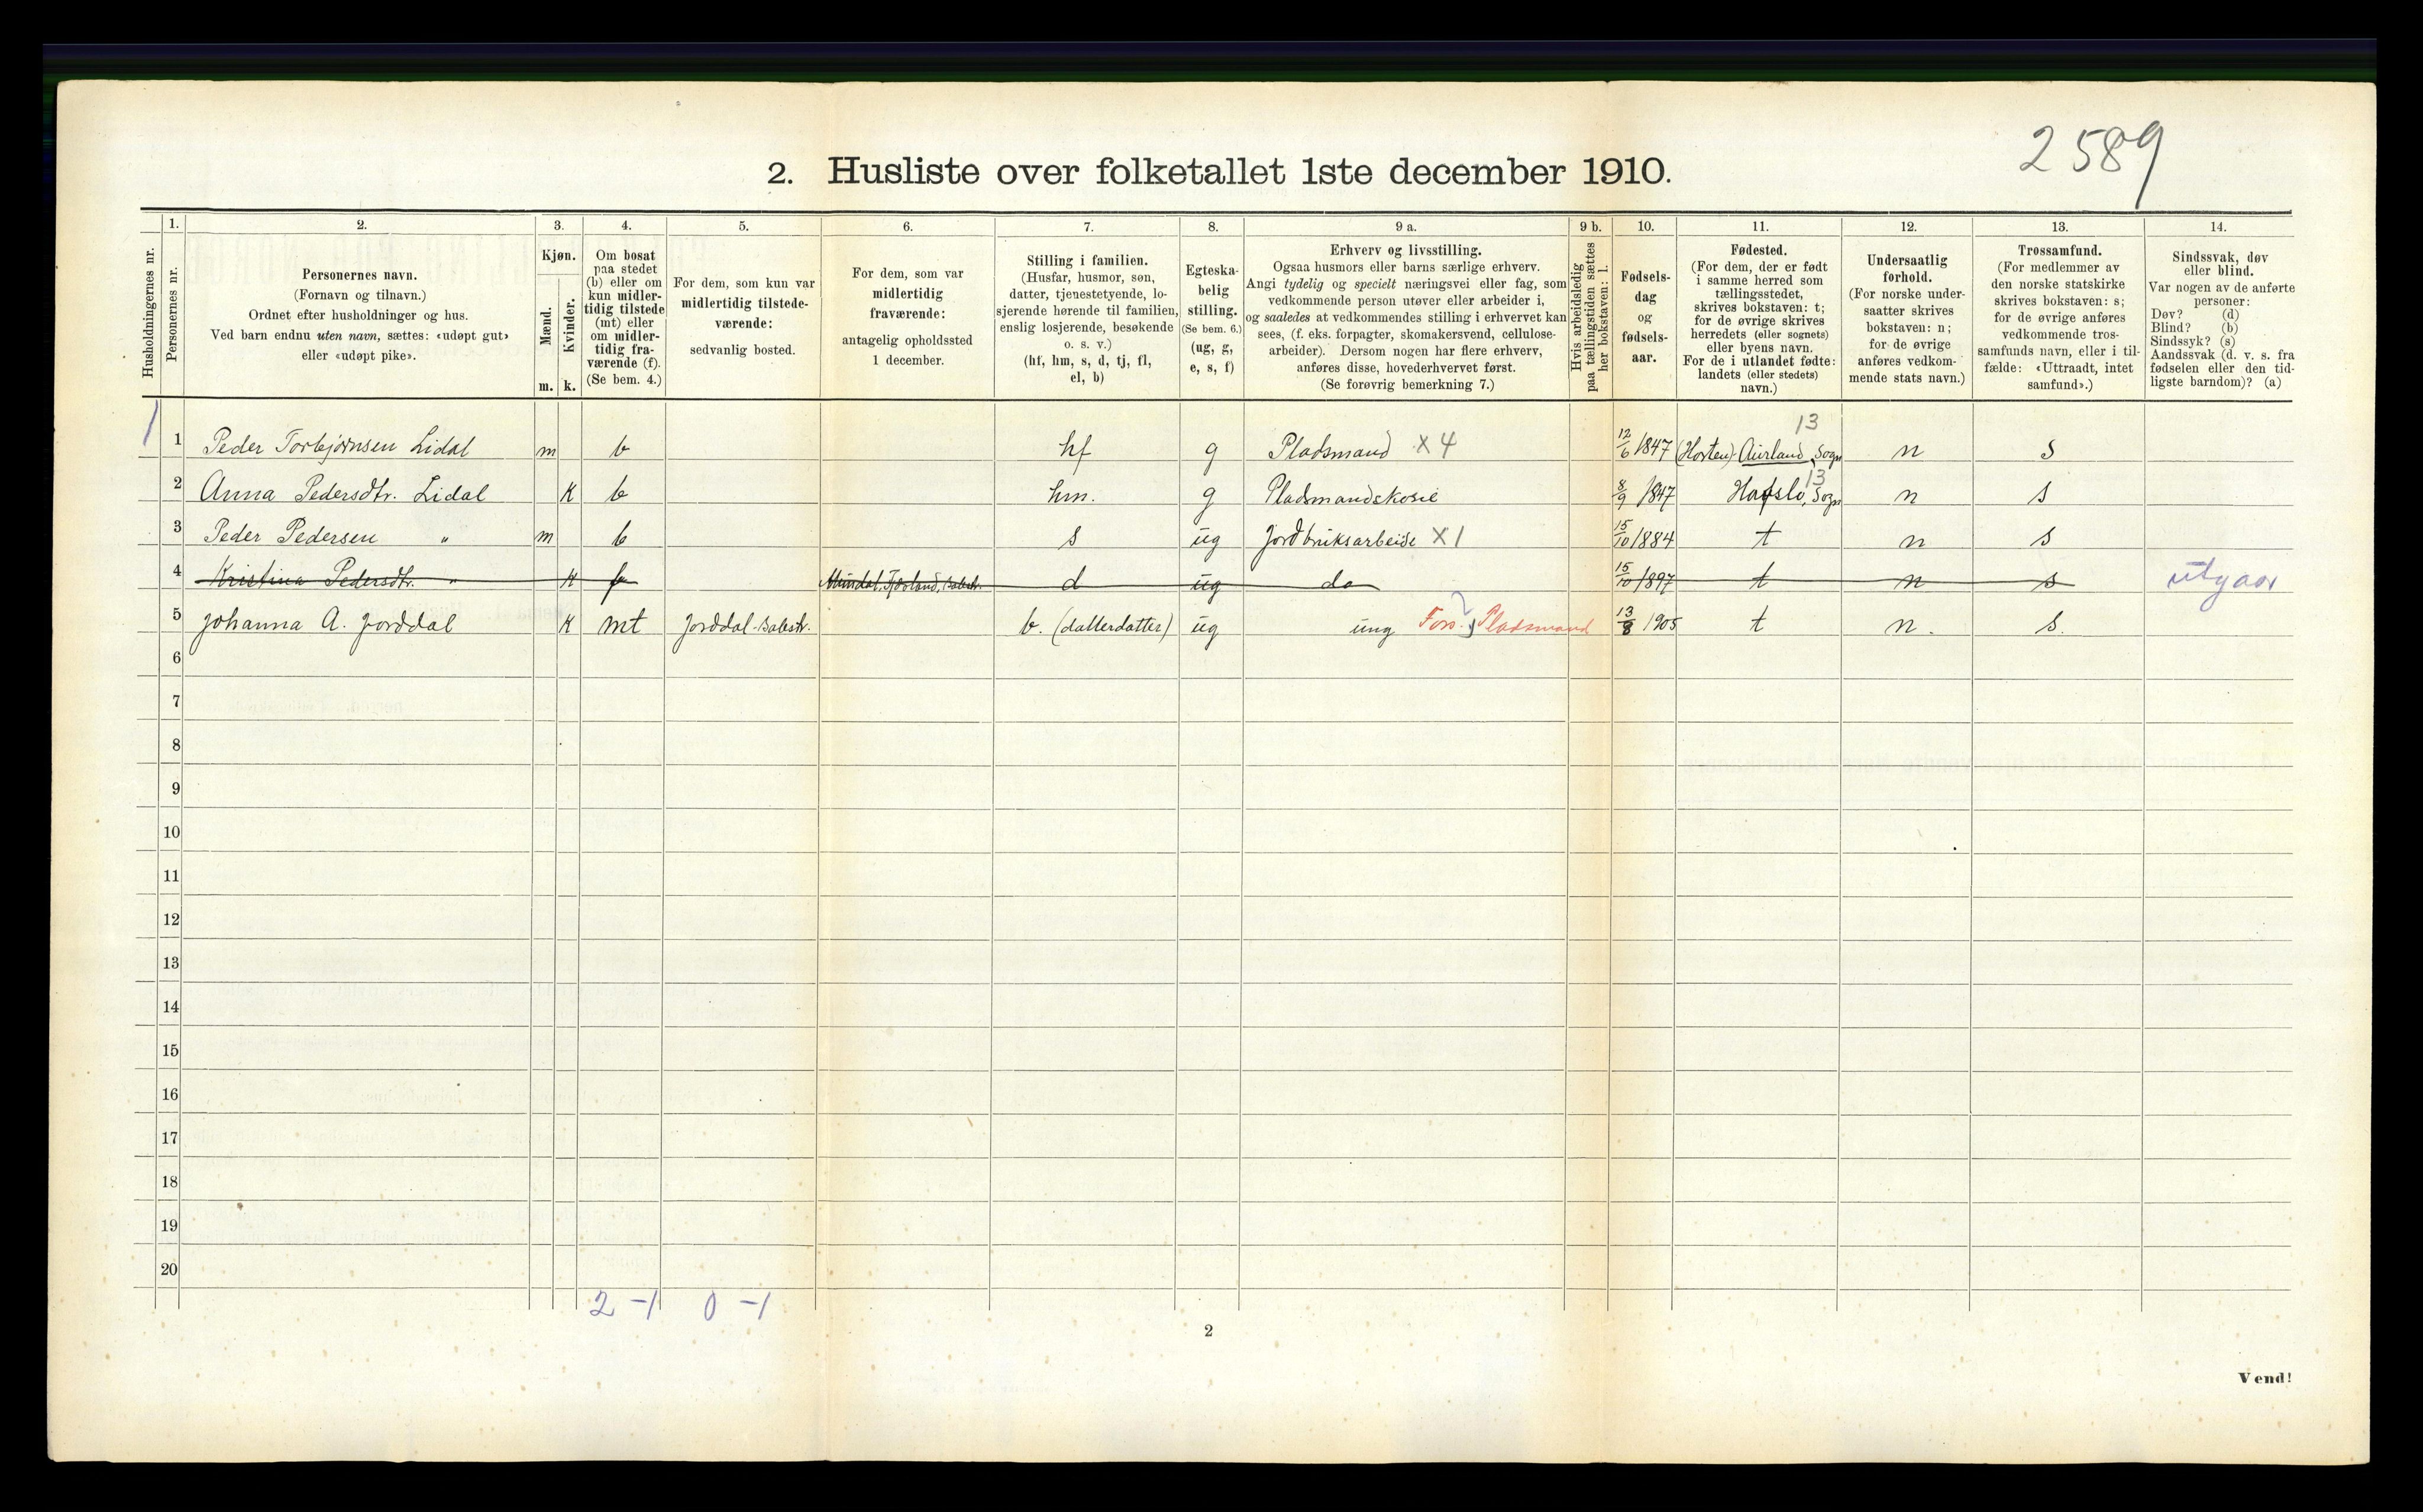 2589
2. Husliste over folketallet 1ste december 1910.
Husholdningernes nr.
1.
Personernes nr.
2.
Personernes navn.
(Fornavn og tilnavn.)
Ordnet efter husholdninger og hus.
Ved barn endnu uten navn, sættes: «udøpt gut»
eller «udøpt pike».
3.
Kjøn.
Mænd.
m.
Kvinder.
k.
4.
Om bosat
paa stedet
(b) eller om
kun midler-
tidig tilstede
(mt) eller
om midler-
tidig fra-
værende (f).
(Se bem. 4.)
5.
For dem, som kun var
midlertidig tilstede-
værende:
sedvanlig bosted.
6.
For dem, som var
midlertidig
fraværende:
antagelig opholdssted
1 december.
7.
Stilling i familien.
(Husfar, husmor, søn,
datter, tjenestetyende, lo-
sjerende hørende til familien,
enslig losjerende, besøkende
o. s. v.)
(hf, hm, s, d, tj, fl,
el, b)
8.
Egteska-
belig
stilling.
(Se bem. 6.)
(ug, g,
e, s, f)
9 a.
Erhverv og livsstilling.
Ogsaa husmors eller barns særlige erhverv.
Angi tydelig og specielt næringsvei eller fag, som
vedkommende person utøver eller arbeider i,
og saaledes at vedkommendes stilling i erhvervet kan
sees, (f. eks. forpagter, skomakersvend, cellulose-
arbeider). Dersom nogen har flere erhverv,
anføres disse, hovederhvervet først.
(Se forøvrig bemerkning 7.)
9 b.
Hvis arbeidsledig
paa tællingstiden sættes
her bokstaven: l.
10.
Fødsels-
dag
og
fødsels-
aar.
11.
Fødested.
(For dem, der er født
i samme herred som
tællingsstedet,
skrives bokstaven: t;
for de øvrige skrives
herredets (eller sognets)
eller byens navn.
For de i utlandet fødte:
landets (eller stedets)
navn.)
12.
Undersaatlig
forhold.
(For norske under-
saatter skrives
bokstaven: n;
for de øvrige
anføres vedkom-
mende stats navn.)
13.
Trossamfund.
(For medlemmer av
den norske statskirke
skrives bokstaven: s;
for de øvrige anføres
vedkommende tros-
samfunds navn, eller i til-
fælde: «Uttraadt, intet
samfund».)
14.
Sindssvak, døv
eller blind.
Var nogen av de anførte
personer:
Døv? (d)
Blind? (b)
Sindssyk? (s)
Aandssvak (d. v. s. fra
fødselen eller den tid-
ligste barndom)? (a)
13
1 1 Peder Torbjørnsen Lidal m b hf g Pladsmand X4 12/6 1847 (Horten) Aurland, Sogn n s
13
2 Anna Pedersdtr. Lidal k b hm. g Pladsmandskone 8/9 1847 Hafslo, Sogn n s
3 Peder Pedersen " m b s ug Jordbruksarbeide X1 15/10 1884 t n s
4 Kristina Pedersdtr. " k f Mundal, Fjærland, Balestr. d ug do 15/10 1897 t n s utgaar
5 Johanna A. Jorddal k mt Jorddal-Balestr. b. (datterdatter) ug ung Fors. Pladsmand 13/8 1905 t n. s.
6
7
8
9
10
11
12
13
14
15
16
17
18
19
20
2-1 0-1
2
Vend!